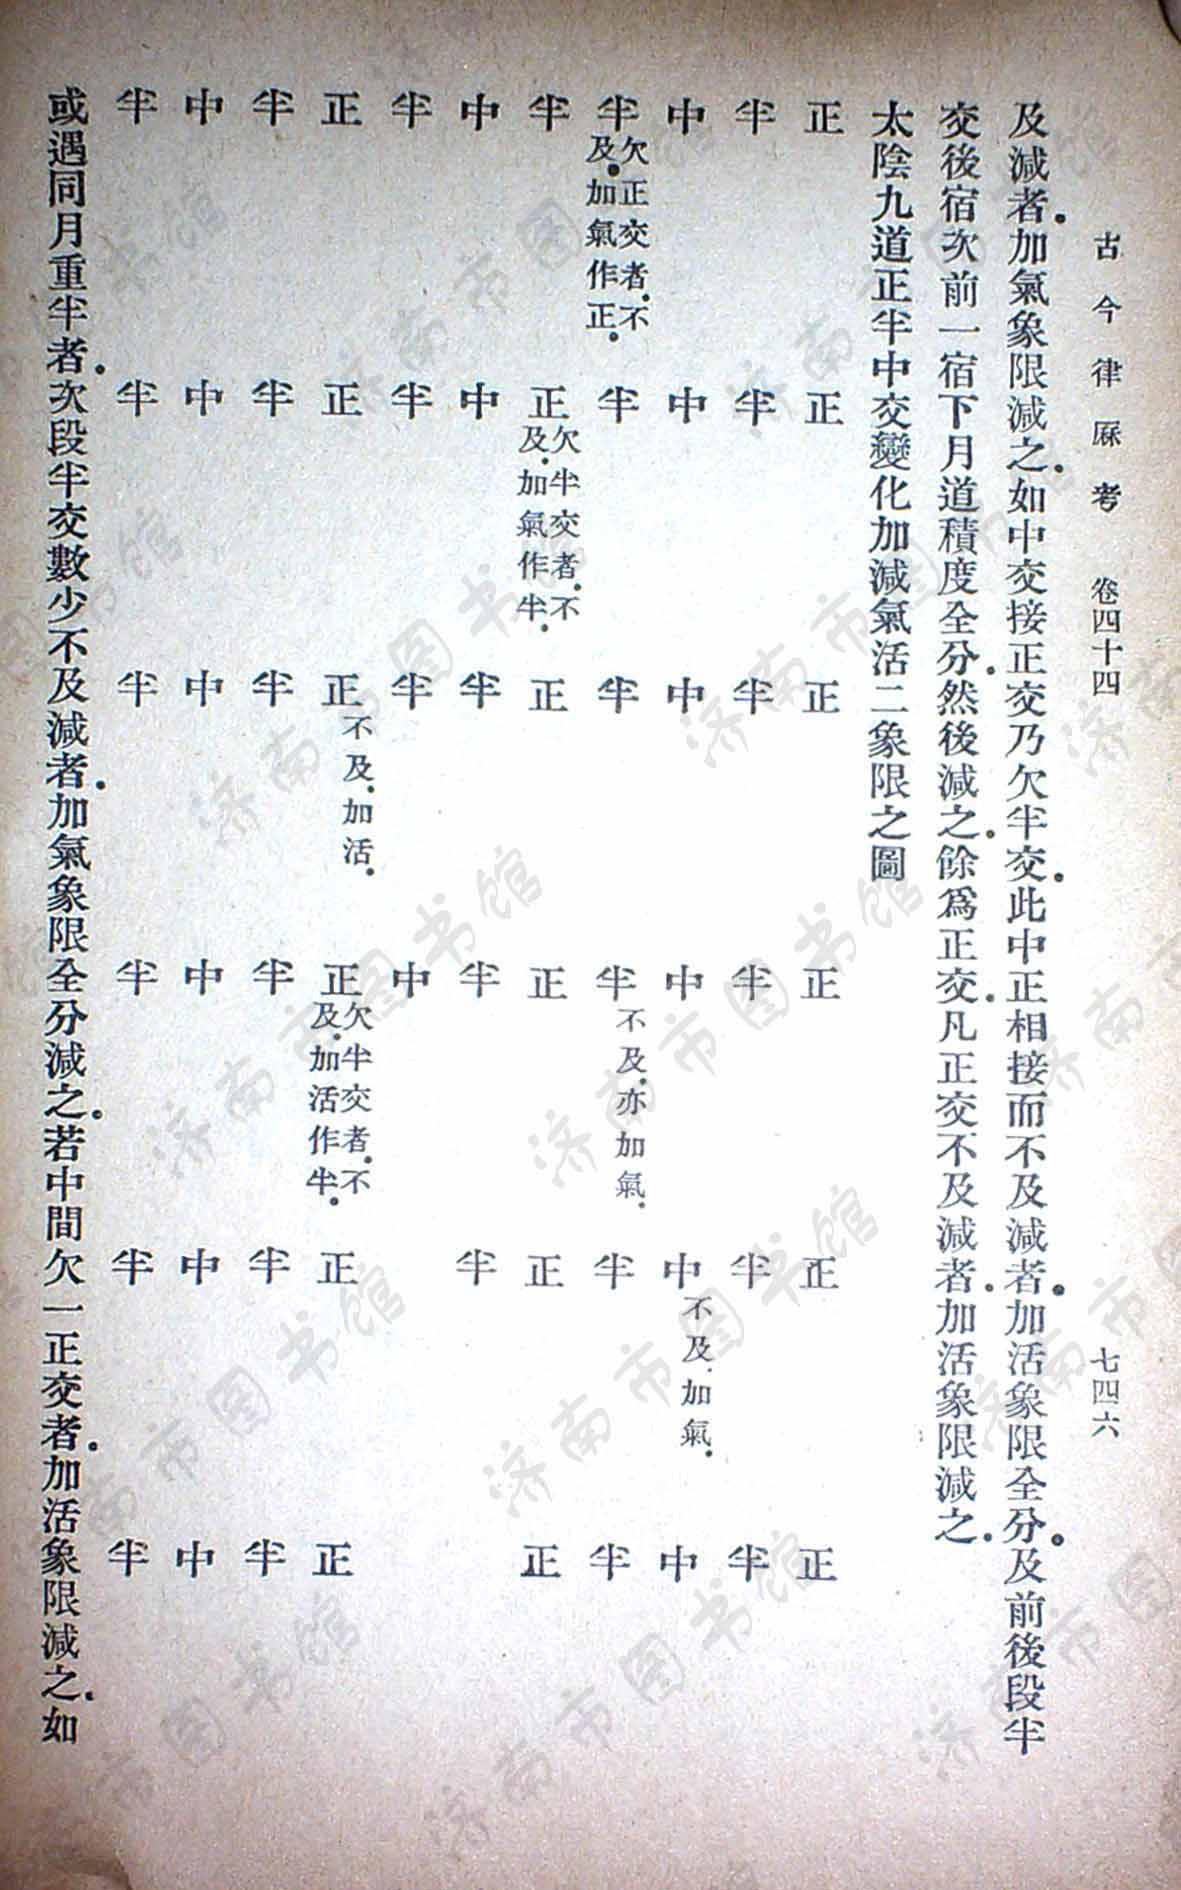 古今律厤考 卷四十四 七四六
及減者。加氣象限減之。如中交接正交乃欠半交。此中正相接而不及減者。加活象限全分。及前後段半
交後宿次前一宿下月道積度全分。然後減之。餘爲正交。凡正交不及減者。加活象限減之。
太陰九道正半中交變化加減氣活二象限之圖
正 正 正 正 正 正
半 半 半 半 半 半
中 中 中 中 中 不及.加氣. 中
半 欠正交者.不及.加氣作正. 半 半 半 不及.亦加氣. 半 半
半 正 欠半交者.不及.加氣作半. 正 正 正 正
中 中 半 半 半
半 半 半 中
正 正 正 不及.加活. 正 欠半交者.不及.加活作半. 正 正
半 半 半 半 半 半
中 中 中 中 中 中
半 半 半 半 半 半
或遇同月重半者。次段半交數少不及減者。加氣象限全分減之。若中間欠一正交者。加活象限減之。如
济南市图书馆